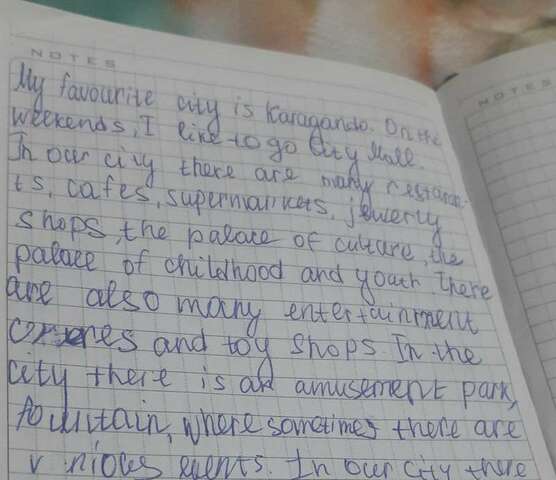 NOTES
NOTES
My favourite city is Karaganda. On the
weekends, I like to go City Mall.
In our city there are many restaran-
ts, cafes, supermarkets, jewerly
shops, the palace of culture, the
palace of childhood and youth. There
are also many entertainment
and toy shops. In the
city there is an amusement park,
fountain, where sometimes there are
events. In our city there